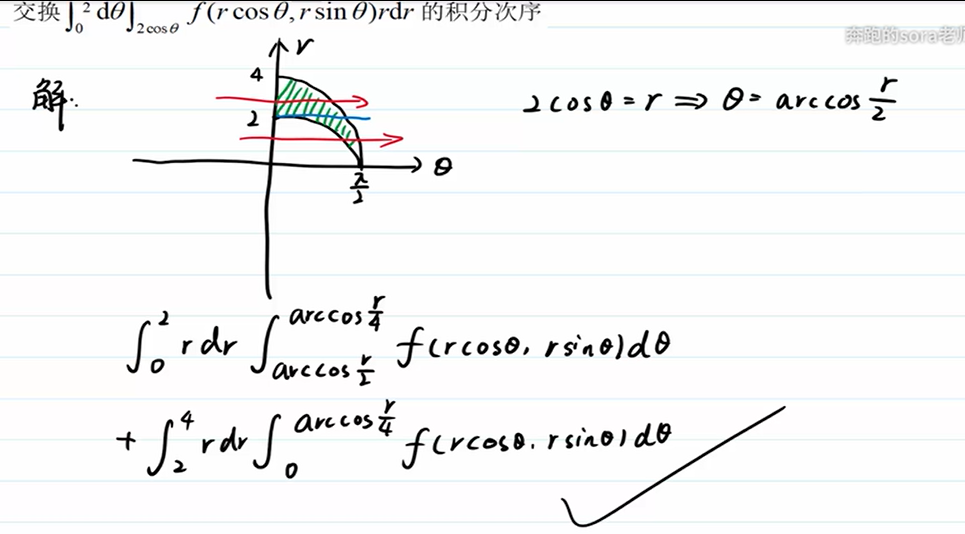 交换∫₀² dθ∫2cosθ f(r cosθ, r sinθ)rdr 的积分次序
奔跑的sora老师
解:
r
4
2
θ
π/2
2cosθ = r ⇒ θ = arccos r/2
∫₀² r dr ∫_{arccos r/2}^{arccos r/4} f(rcosθ, rsinθ)dθ
+ ∫₂⁴ r dr ∫₀^{arccos r/4} f(rcosθ, rsinθ)dθ